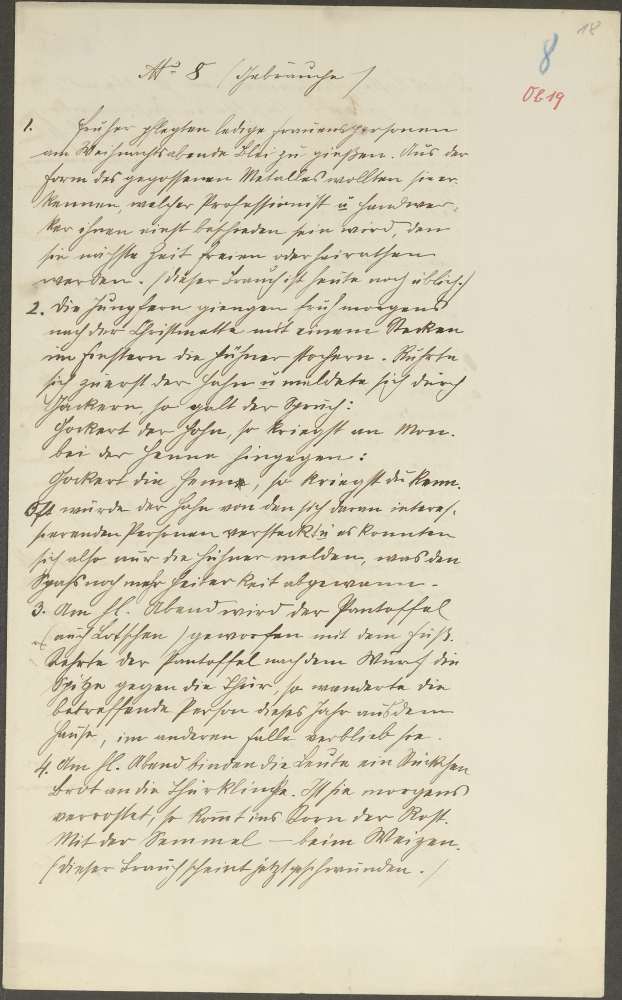 18
8
Ob 19
No 8 (Gebräuche)
1. Früher pflegten ledige Frauenspersonen
am Weihnachtsabende Blei zu gießen. Aus der
Form des gegossenen Metalles wollten sie er-
kennen, welcher Professionist u Handwer-
ker ihnen einst beschieden sein wird, den
sie nächste Zeit freien oder heirathen
werden. (Dieser Brauch ist heute noch üblich.)
2. Die Jungfern giengen früh morgens
nach der Christmette mit einem Stecken
im Finstern die Hühner stochern. Rührte
sich zuerst der Hahn u meldete sich durch
Gackern, so galt der Spruch:
Gockert der Hohn, so kriegst an Mon.
bei der Henne hingegen:
Gockert die Henne, so kriegst du kenn.
Oft wurde der Hahn von den sich daran interes-
sierenden Personen versteckt u es konnten
sich also nur die Hühner melden, was den
Spaß noch mehr Heiterkeit abgewann.
3. Am hl. Abend wird der Pantoffel
(auch Lotschen) geworfen mit dem Fuß.
Kehrte der Pantoffel nach dem Wurf die
Spitze gegen die Thür, so wanderte die
betreffende Person dieses Jahr aus dem
Hause, im anderen Falle verblieb sie.
4. Am hl. Abend binden die Leute ein Stückchen
Brot an die Thürklinke. Ist sie morgens
verrostet, so kommt ins Korn der Rost.
Mit der Semmel — beim Weizen.
(Dieser Brauch scheint jetzt geschwunden.)